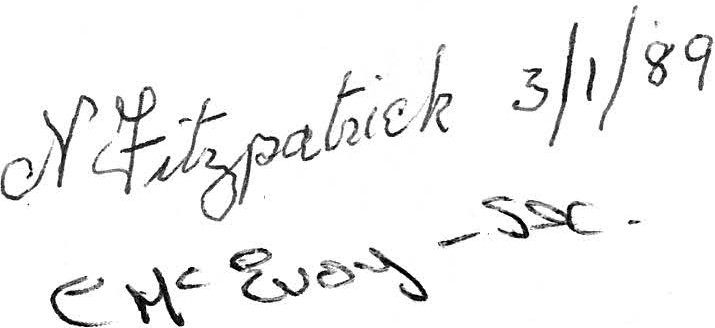 N Fitzpatrick 3/1/89
C Mc Evoy - SSC.